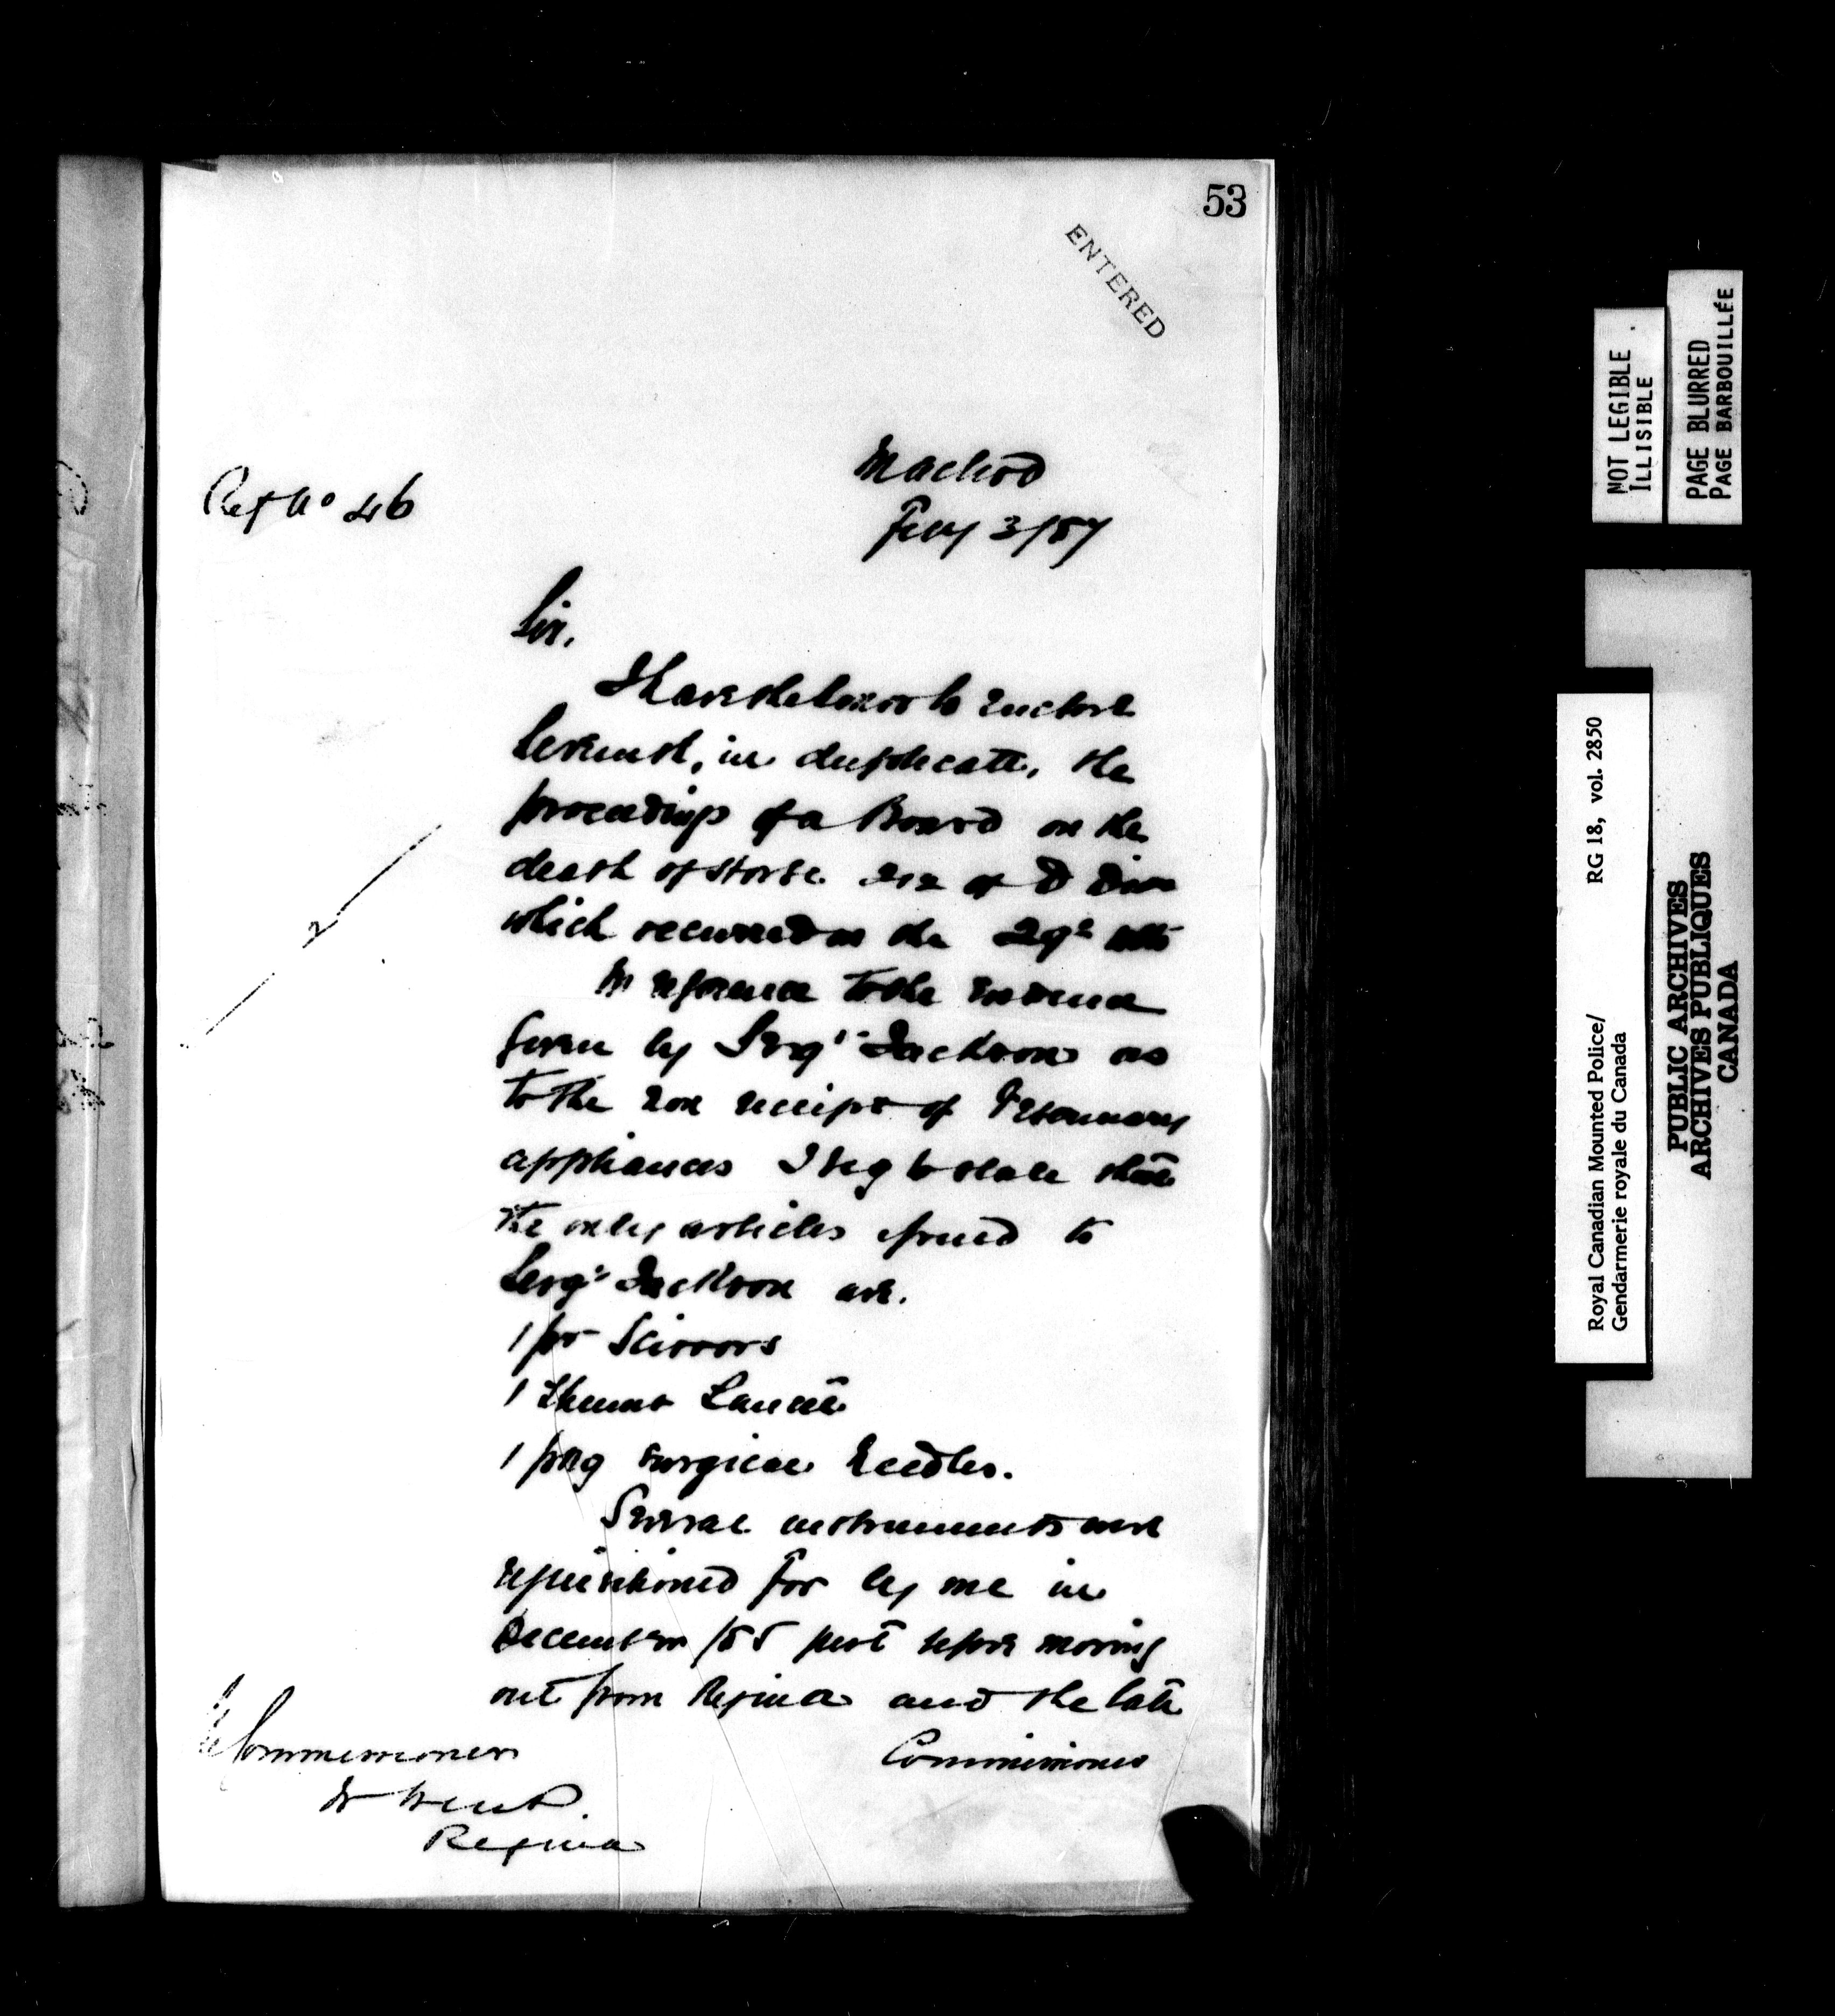 53
ENTERED
Macleod
Ref No 46
Feby 3/87
Sir,
I have the honor to enclose
herewith, in duplicate, the
proceedings of a Board on the
death of Horse 212 of D Divn
which occurred on the 29th ulto
In reference to the evidence
given by Sergt Jackson as
to the non receipt of Veterinary
appliances I beg to state that
the only articles issued to
Sergt Jackson are.
1 pr Scissors
1 Thumb Lancet
1 pkg surgical Needles.
Several instruments were
requisitioned for by me in
December /85 just before moving
out from Regina and the late
Commissioner
Commissioner
Regina
NOT LEGIBLE
ILLISIBLE
PAGE BLURRED
PAGE BARBOUILLÉE
Royal Canadian Mounted Police/
Gendarmerie royale du Canada
RG 18, vol. 2850
PUBLIC ARCHIVES
ARCHIVES PUBLIQUES
CANADA